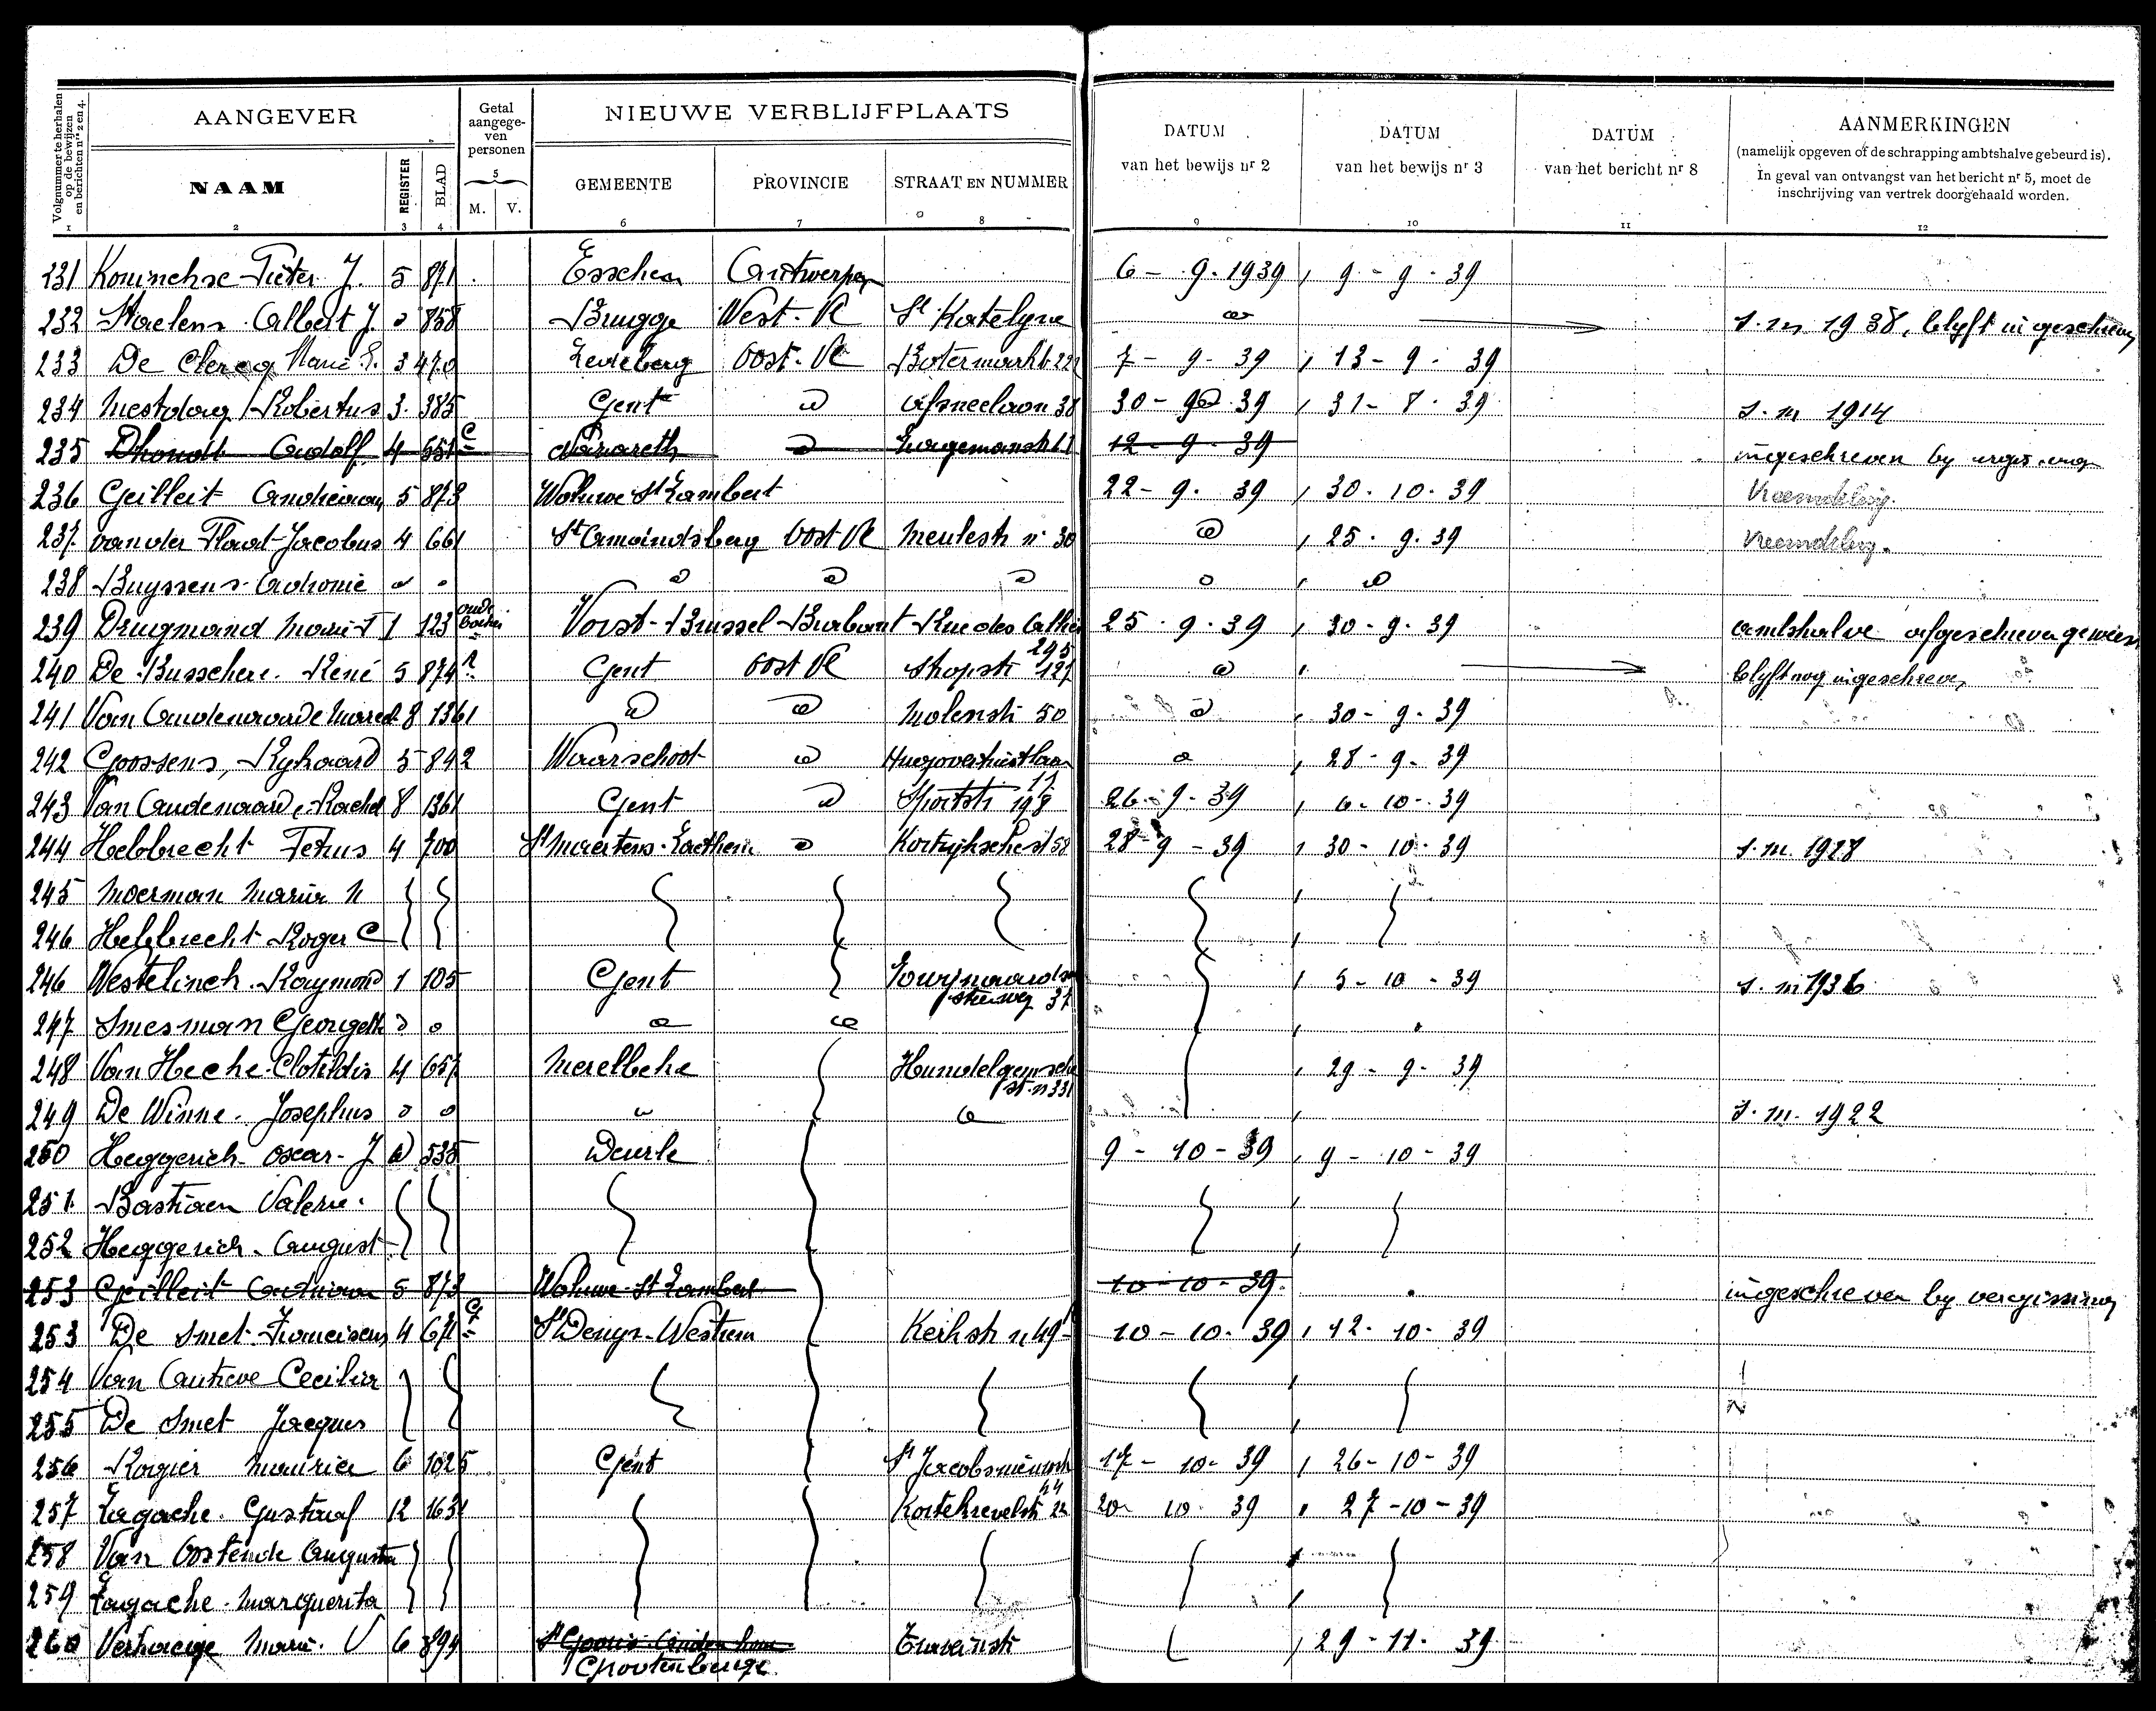 Volgnummer te herhalen op de bewijzen en berichten nrs 2 en 4.
AANGEVER
Getal aangege-ven personen
NIEUWE VERBLIJFPLAATS
DATUM van het bewijs nr 2
DATUM van het bewijs nr 3
DATUM van het bericht nr 8
AANMERKINGEN
(namelijk opgeven of de schrapping ambtshalve gebeurd is).
In geval van ontvangst van het bericht nr 5, moet de
inschrijving van vertrek doorgehaald worden.
NAAM REGISTER BLAD 5 M. V. GEMEENTE PROVINCIE STRAAT EN NUMMER
1 2 3 4 6 7 8 9 10 11 12
231 Koninckx Pieter J. 5 871 Esschen Antwerpen 6 - 9 - 1939 9 - 9 - 39
232 Staelens Albert J. 858 Brugge West-Vl St Katelyne s. m 1938, blyft ingeschreven
233 De Clercq Marie E. 3 470 Ledeberg Oost-Vl Botermarkt 7 - 9 - 39 13 - 9 - 39
234 Mestdag Robertus 3 385 Gent Afsneelaan 38 30 - 39 31 - 8 - 39 s. m 1914
235 Dhondt Adolf 4 551 Nazareth 12 - 9 - 39 ingeschreven by
236 Geilleit 5 873 Woluwe St Lambert 22 - 9 - 39 30 - 10 - 39 Vreemdeling.
237 Van der Jacobus 4 661 St Amandsberg Oost Vl Meulestr n° 30 25 - 9 - 39 Vreemdeling.
238 Buyssens
239 Drugmand Marie 1 123 Vorst-Brussel Brabant Rue des 295 25 - 9 - 39 30 - 9 - 39 ambtshalve afgeschreven geweest
240 De Busschere René 5 874 Gent Oost Vl 127 blyft nog ingeschreven
241 Van Oudenaarde 8 1361 Molenstr 50 30 - 9 - 39
242 Goossens, Rykaard 5 842 Waarschoot Hugo Verrieststlaan 11 28 - 9 - 39
243 Van Oudenaarde Rachel 8 1361 Gent Sportstr 198 26 - 9 - 39 6 - 10 - 39
244 Hebbrecht Petrus 4 700 St Maertens-Laethem Kortrijksche st 58 28 - 9 - 39 30 - 10 - 39 s. m. 1928
245 Moerman Maria M
246 Hebbrecht Roger C
246 Westelinck Raymond 1 105 Gent steenweg 37 5 - 10 - 39 s. m 1936
247 Smesman Georgette
248 Van Hecke Clotildis 4 657 Merelbeke Hundelgemsche st. n 331 29 - 9 - 39
249 De Winne Josephus s. m. 1922
250 Heggerich Oscar J 535 Deurle 9 - 10 - 39 9 - 10 - 39
251 Bastiaen Valerie
252 Heggerich August
253 Geilleit 5 873 Woluwe St Lambert 10 - 10 - 39 ingeschreven by vergissing
253 De Smet Franciscus 4 671 St Denys-Westrem Kerkstr n 49 10 - 10 - 39 12 - 10 - 39
254 Van Autreve Cecilia
255 De Smet Jacques
256 Rogier Maurice 6 1025 Gent St Jacobsnieuwstr 17 - 10 - 39 26 - 10 - 39
257 Lagache Gustaaf 12 1631 Korte 20 - 10 - 39 27 - 10 - 39
258 Van Oostende Augusta
259 Lagache Marguerita
260 Verhaege Marie V 6 894 29 - 11 - 39
Grootenberge